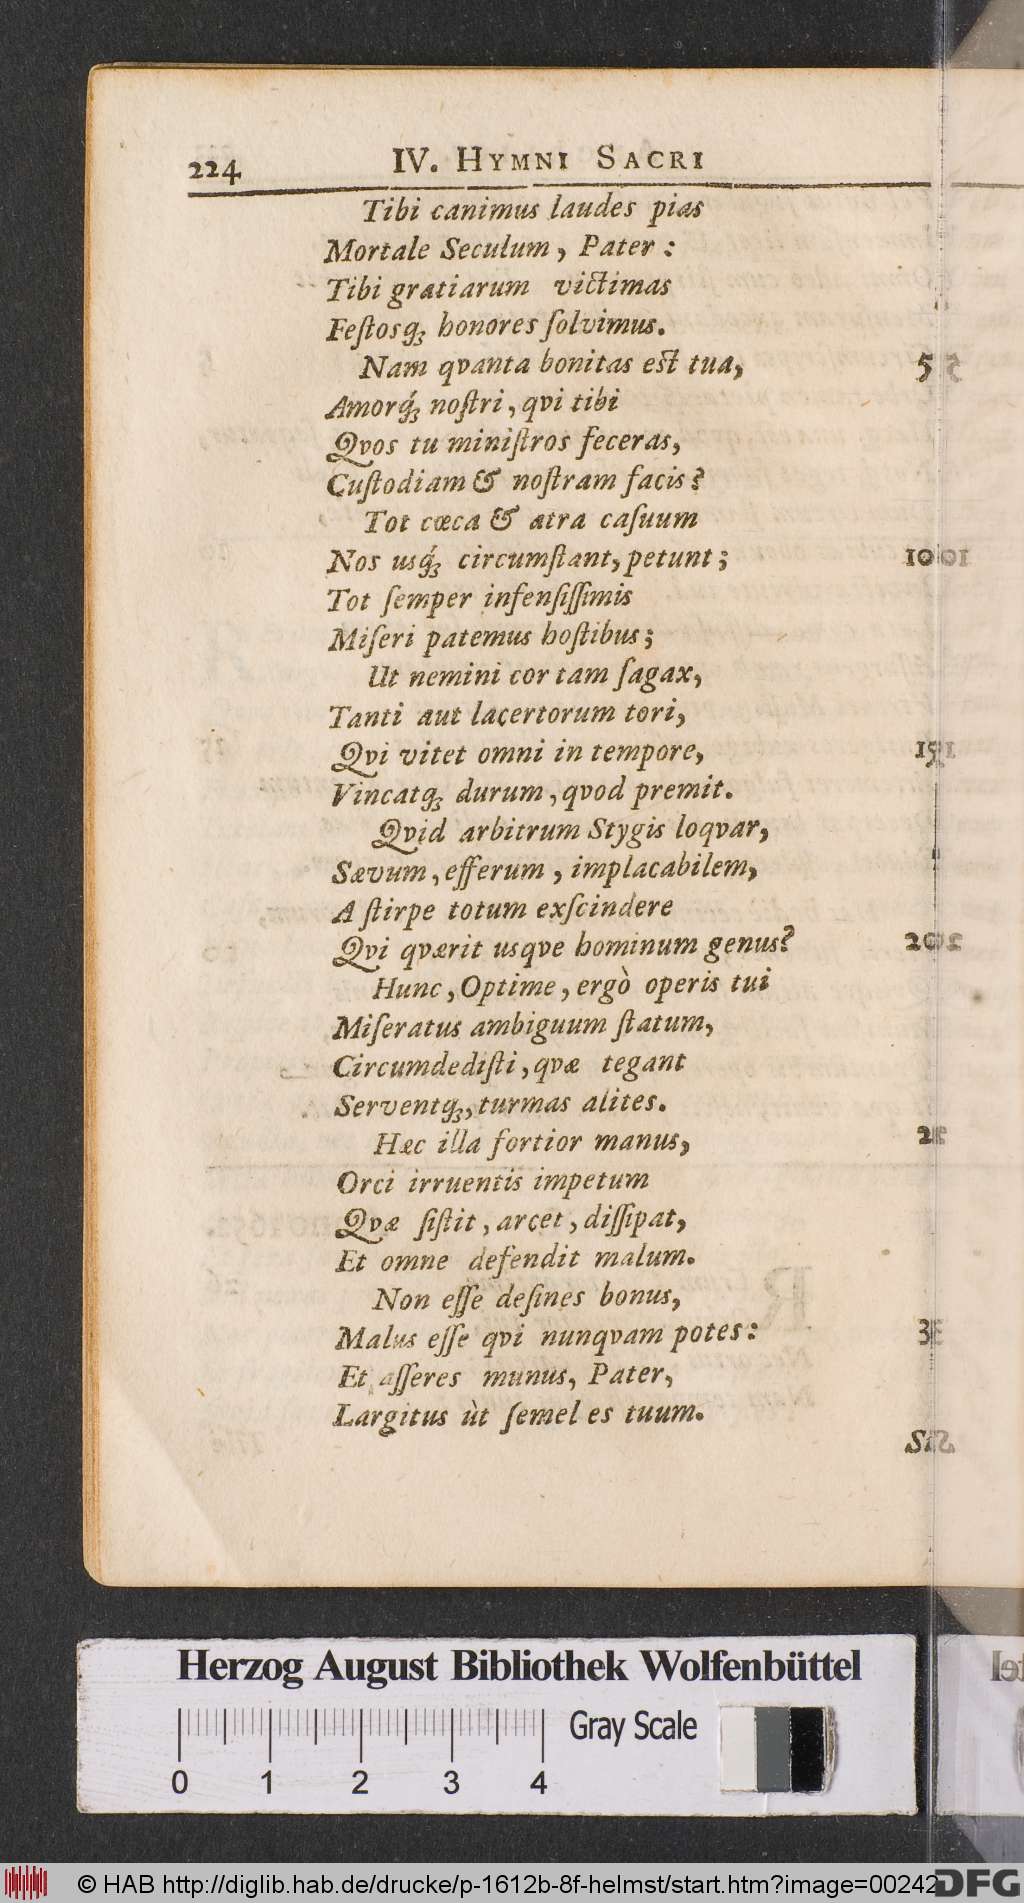 224 IV. HYMNI SACRI
Tibi canimus laudes pias
Mortale Seculum, Pater:
Tibi gratiarum victimas
Feſtosq́ꝫ honores ſolvimus.
Nam qvanta bonitas eſt tua, 5
Amorq́ꝫ noſtri, qvi tibi
Qvos tu miniſtros feceras,
Cuſtodiam & noſtram facis?
Tot cœca & atra caſuum
Nos usq́ꝫ circumſtant, petunt; 10
Tot ſemper infenſiſſimis
Miſeri patemus hoſtibus;
Ut nemini cor tam ſagax,
Tanti aut lacertorum tori,
Qvi vitet omni in tempore, 15
Vincatqꝫ durum, qvod premit.
Qvid arbitrum Stygis loqvar,
Sævum, efferum, implacabilem,
A ſtirpe totum exſcindere
Qvi qværit usqve hominum genus? 20
Hunc, Optime, ergò operis tui
Miſeratus ambiguum ſtatum,
Circumdediſti, qvæ tegant
Serventqꝫ, turmas alites.
Hæc illa fortior manus, 25
Orci irruentis impetum
Qvæ ſiſtit, arcet, diſſipat,
Et omne defendit malum.
Non eſſe deſines bonus,
Malus eſſe qvi nunqvam potes: 30
Et aſſeres munus, Pater,
Largitus ùt ſemel es tuum.
Herzog August Bibliothek Wolfenbüttel
Gray Scale
0 1 2 3 4
© HAB http://diglib.hab.de/drucke/p-1612b-8f-helmst/start.htm?image=00242
DFG